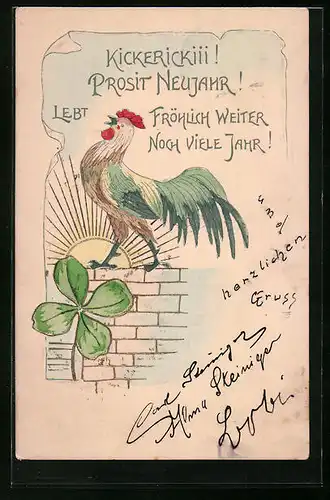 Kickerickiii!
Prosit Neujahr!
Lebt Fröhlich Weiter
Noch Viele Jahr!
herzlichen
Gruss
Alma Steiniger